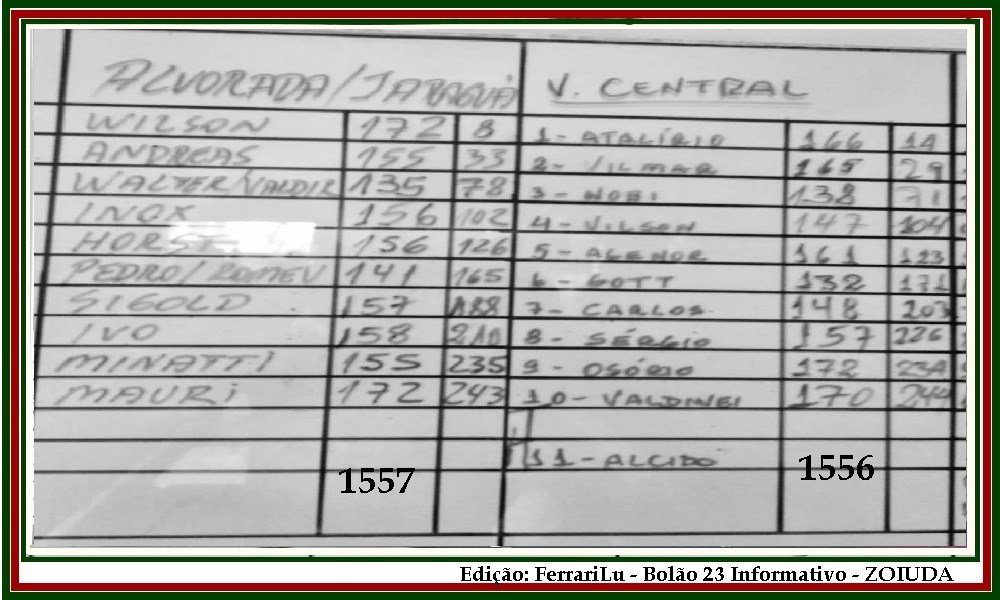 ALVORADA/JARAGUÁ
WILSON 172 8
ANDREAS 155 33
WALTER/VALDIR 135 78
INOX 156 102
HORST 156 126
PEDRO/ROMEU 141 165
SIGOLD 157 188
IVO 158 210
MINATTI 155 235
MAURI 172 243
1557
V. CENTRAL
1- ATALÍRIO 166 14
2- VILMAR 165 29
3- NOBI 138 71
4- VILSON 147 104
5- AGENOR 161 123
6- GOTT 132 171
7- CARLOS 148 203
8- SÉRGIO 157 226
9- OSÓRIO 172 234
10- VALDINEI 170 244
11- ALCIDO
1556
Edição: FerrariLu - Bolão 23 Informativo - ZOIUDA